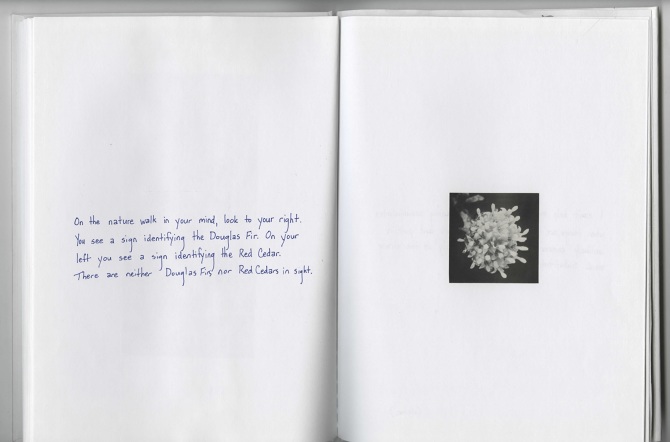 On the nature walk in your mind, look to your right.
You see a sign identifying the Douglas Fir. On your
left you see a sign identifying the Red Cedar.
There are neither Douglas Firs nor Red Cedars in sight.